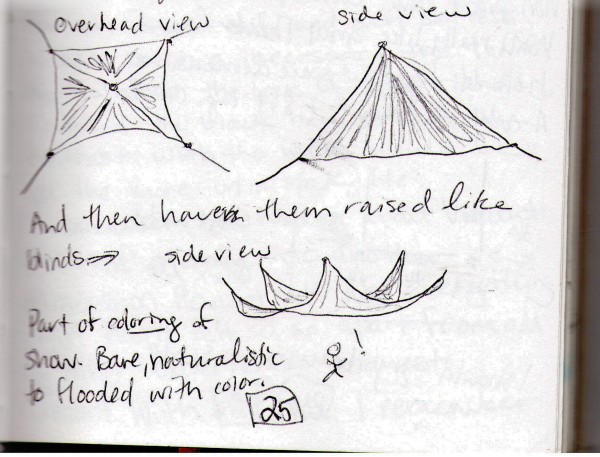 overhead view
side view
And then have them raised like
blinds⇒ side view
Part of coloring of
show. Bare, naturalistic
to flooded with color.
!
25